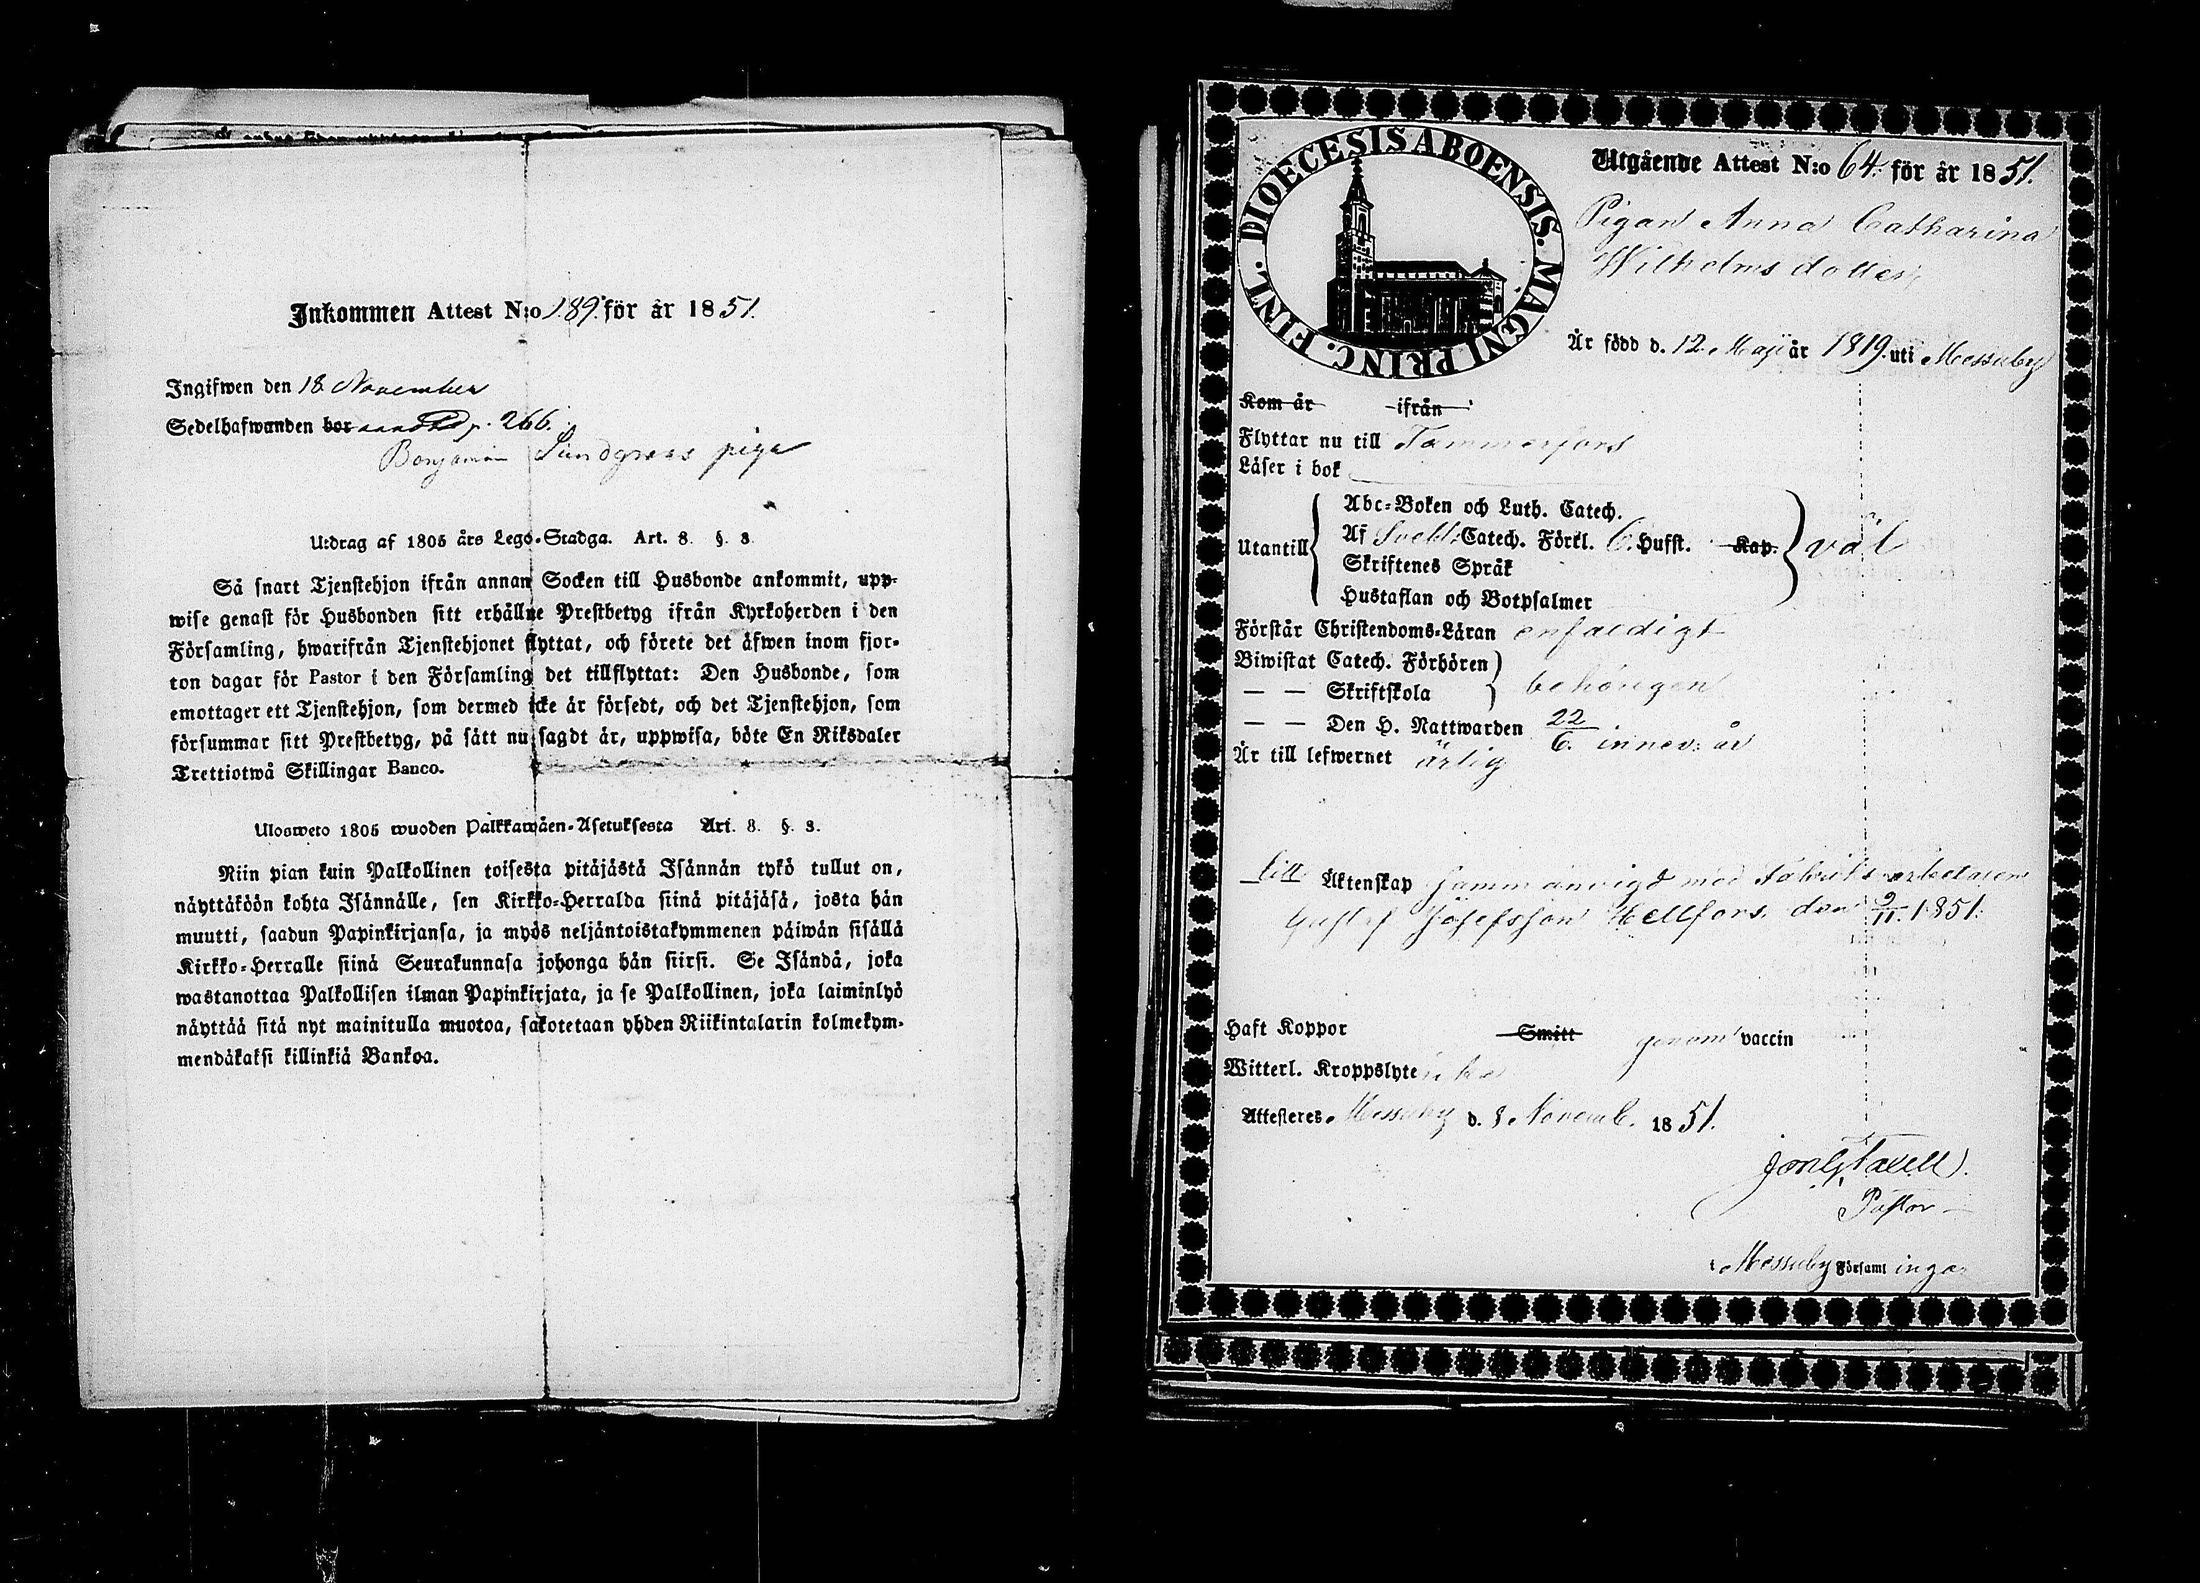 Inkommen Attest N:o 189. för år 1851.
Ingifwen den 18 November
Sedelhafwanden bor p. 266.
Benjamin Sundgrens piga
Utdrag af 1805 års Lego-Stadga. Art. 8. §. 3.
Så snart Tjenstehjon ifrån annan Socken till Husbonde ankommit, upp-
wise genast för Husbonden sitt erhållne Prestbetyg ifrån Kyrkoherden i den
Församling, hwarifrån Tjenstehjonet flyttat, och förete det äfwen inom fjor-
ton dagar för Pastor i den Församling det tillflyttat: Den Husbonde, som
emottager ett Tjenstehjon, som dermed icke är försedt, och det Tjenstehjon, som
försummar sitt Prestbetyg, på sätt nu sagdt är, uppwisa, böte En Riksdaler
Trettiotwå Skillingar Banco.
Ulosweto 1805 wuoden Palkkawäen-Asetuksesta Art. 8. §. 3.
Niin pian kuin Palkollinen toisesta pitäjästä Isännän tykö tullut on,
näyttäköön kohta Isännälle, sen Kirkko-Herralda siinä pitäjäsä, josta hän
muutti, saadun Papinkirjansa, ja myös neljäntoistakymmenen päiwän sisällä
Kirkko-Herralle siinä Seurakunnasa johonga hän siirsi. Se Isändä, joka
wastanottaa Palkollisen ilman Papinkirjata, ja se Palkollinen, joka laiminlyö
näyttää sitä nyt mainitulla muotoa, sakotetaan yhden Riikintalarin kolmekym-
mendäkaksi killinkiä Bankoa.
DIOECESIS ABOENSIS. MAGNI PRINC. FINL.
Utgående Attest N:o 64. för år 1851.
Pigan Anna Catharina
Wilhelmsdotter,
Är född d. 12 Maji år 1819. uti Messuby
Kom år ifrån
Flyttar nu till Tammerfors
Läser i bok
Abc-Boken och Luth. Catech.
Utantill Af Sveb. Catech. Förkl. C. Hufst. Kap. väl
Skriftenes Språk
Hustaflan och Botpsalmer
Förstår Christendoms-Läran enfaldigt
Biwistat Catech. Förhören
— — Skriftskola behörigen
— — Den H. Nattwarden 22/6. innev. år
Är till lefwernet ärlig
till Äktenskap sammanvigd med Fabriksarbetaren
Gustaf Josefsson Hellfors, den 9/11. 1851.
Haft Koppor Smitt genom vaccin
Witterl. Kroppslyte
Attesteres Messuby d. 8 Novemb. 1851.
Pastor
i Messuby Församlinga